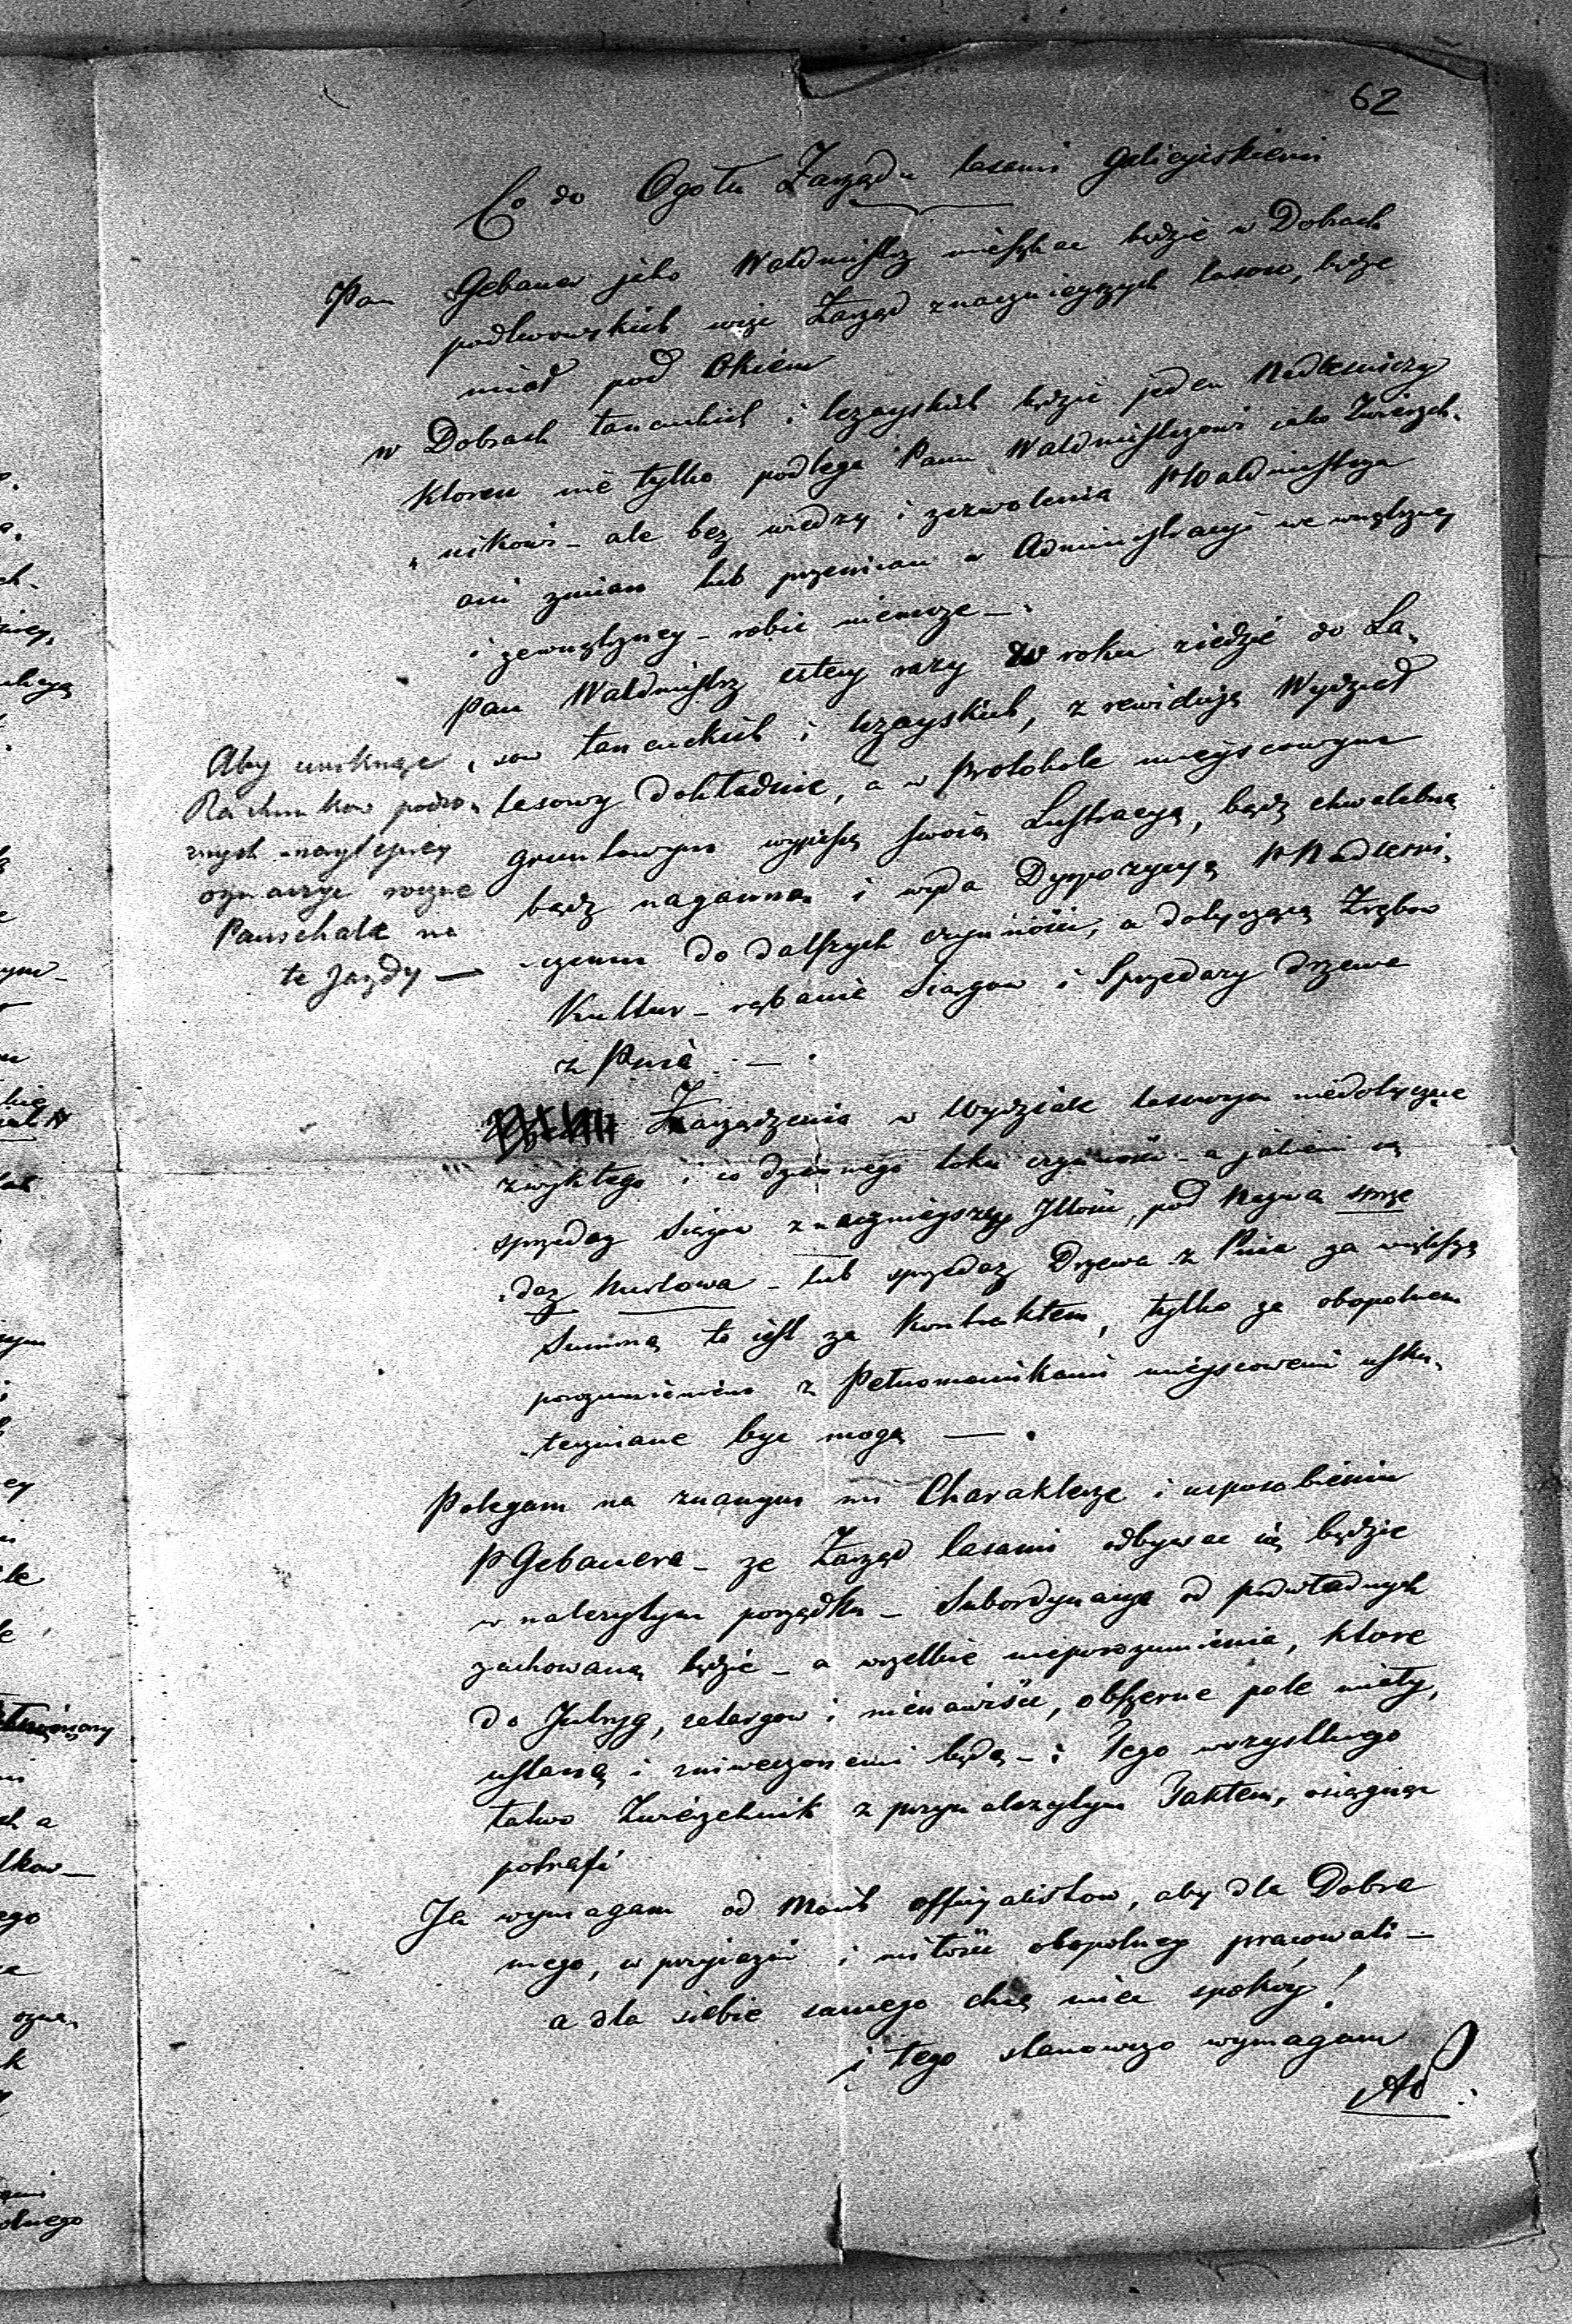 62
Co do Ogołu Zarządu lasami Galicyiskiemi
Pan Gebauer jako Waldmistrz mieszkac będzie w Dobrach
podlwowskich więc Zarząd znacznieyszych lasow, będzie
miał pod Okiem
w Dobrach łancuckich i lezayskich będzie jeden Nadlesniczy
ktoren nie tylko podlega Panu Waldmistrzowi iako Zwierzch-
nikowi - ale bez wiedzy i zezwolenia PWaldmistrza
ani zmian lub przemian w Administracyi wewnętrzney
i zewnętrzney - robic niemoze -.
Pan Waldmistrz cztery razy w roku ziedzie do La-
sow łancuckich i lezayskich, zrewiduję Wydział
lesowy dokładnie, a w Protokole mieyscowym
gruntowym wypisze swoią Lustracyą, bądz chwalebną
bądz naganną i wyda Dyspozycyą PNadlesni-
czemu do dalszych czynności, a dotyczącą Zrębow
Kultur - rąbanie Siągow i Sprzedazy drzewa
z Pnia -.
Aby uniknąc
Rachunkow podro-
znych naylepiey
oznaczyc roczne
Pauschale na
te Jazdy —
Zarządzenia w Wydziale lasowym niedotyczące
zwykłego i codziennego toku czynnosci - a jakiemi są
sprzedaz Siągow znacznieyszey Jlloсi, pod Nazwą sprze
daz hurtowa - lub sprzedaz Drzewa z Pnia za większą
Summą to iest za Kontraktem, tylko za obopolnem
porozumieniem z Pełnomocnikami mieyscowemi usku-
teczniane byc mogą — .
Polegam na znanym mi Charakterze i usposobieniu
PGebauera - ze Zarząd lasami odbywac się będzie
w nalezytym porządku - Subordynacya od podwładnych
zachowaną będzie - a wszelkie nieporozumienia, ktore
do Jntryg, zatargow i nienawiści, obszerne pole miały,
ustaną i zniweczonemi będą - i Tego wszystkiego
łatwo Zwierzchnik z przynalezytym Taktem, osiągnąc
potrafi
Ja wymagam od Moich officyalistow, aby dla Dobra
mego, w przyiazni i miłości obopolney pracowali -
a dla siebie samego chcę miec spokoy!
i tego stanowczo wymagam